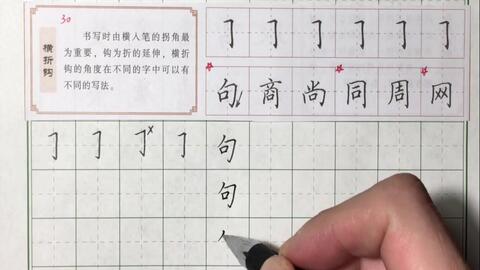 30
横折钩
书写时由横入笔的拐角最
为重要，钩为折的延伸，横折
钩的角度在不同的字中可以有
不同的写法。
㇆ ㇆ ㇆ ㇆ ㇆ ㇆
句 商 尚 同 周 网
㇆ ㇆ ㇆ x ㇆ 句
句